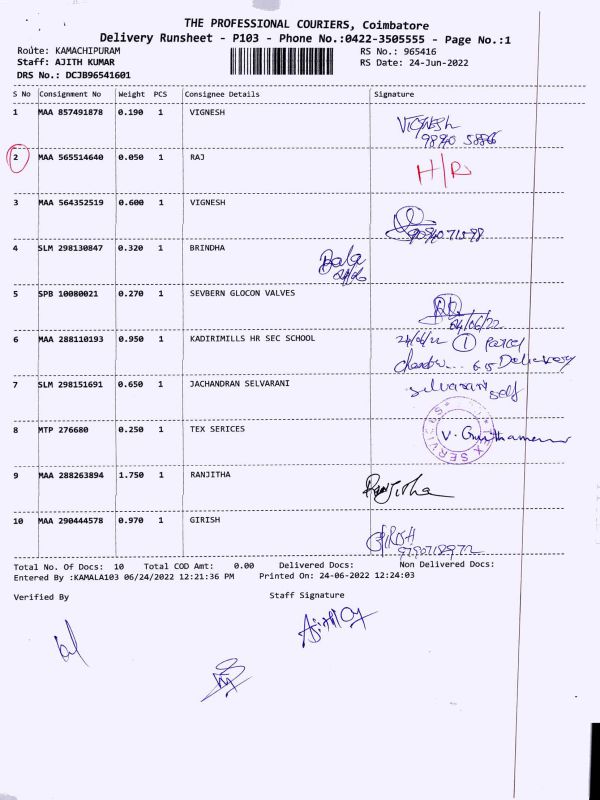 THE PROFESSIONAL COURIERS, Coimbatore
Delivery Runsheet - P103 - Phone No.:0422-3505555 - Page No.:1
Route: KAMACHIPURAM RS No.: 965416
Staff: AJITH KUMAR RS Date: 24-Jun-2022
DRS No.: DCJB96541601
S No Consignment No Weight PCS Consignee Details Signature
1 MAA 857491878 0.190 1 VIGNESH VIGNESH
2 MAA 565514640 0.050 1 RAJ H/R
3 MAA 564352519 0.600 1 VIGNESH
4 SLM 298130847 0.320 1 BRINDHA Bala
5 SPB 10080021 0.270 1 SEVBERN GLOCON VALVES
24/06/22
6 MAA 288110193 0.950 1 KADIRIMILLS HR SEC SCHOOL 1 Parcel
Delivery
7 SLM 298151691 0.650 1 JACHANDRAN SELVARANI selvarani self
8 MTP 276680 0.250 1 TEX SERICES TEX SERVICES
9 MAA 288263894 1.750 1 RANJITHA Ranjitha
10 MAA 290444578 0.970 1 GIRISH GIRISH
Total No. Of Docs: 10 Total COD Amt: 0.00 Delivered Docs: Non Delivered Docs:
Entered By :KAMALA103 06/24/2022 12:21:36 PM Printed On: 24-06-2022 12:24:03
Verified By Staff Signature